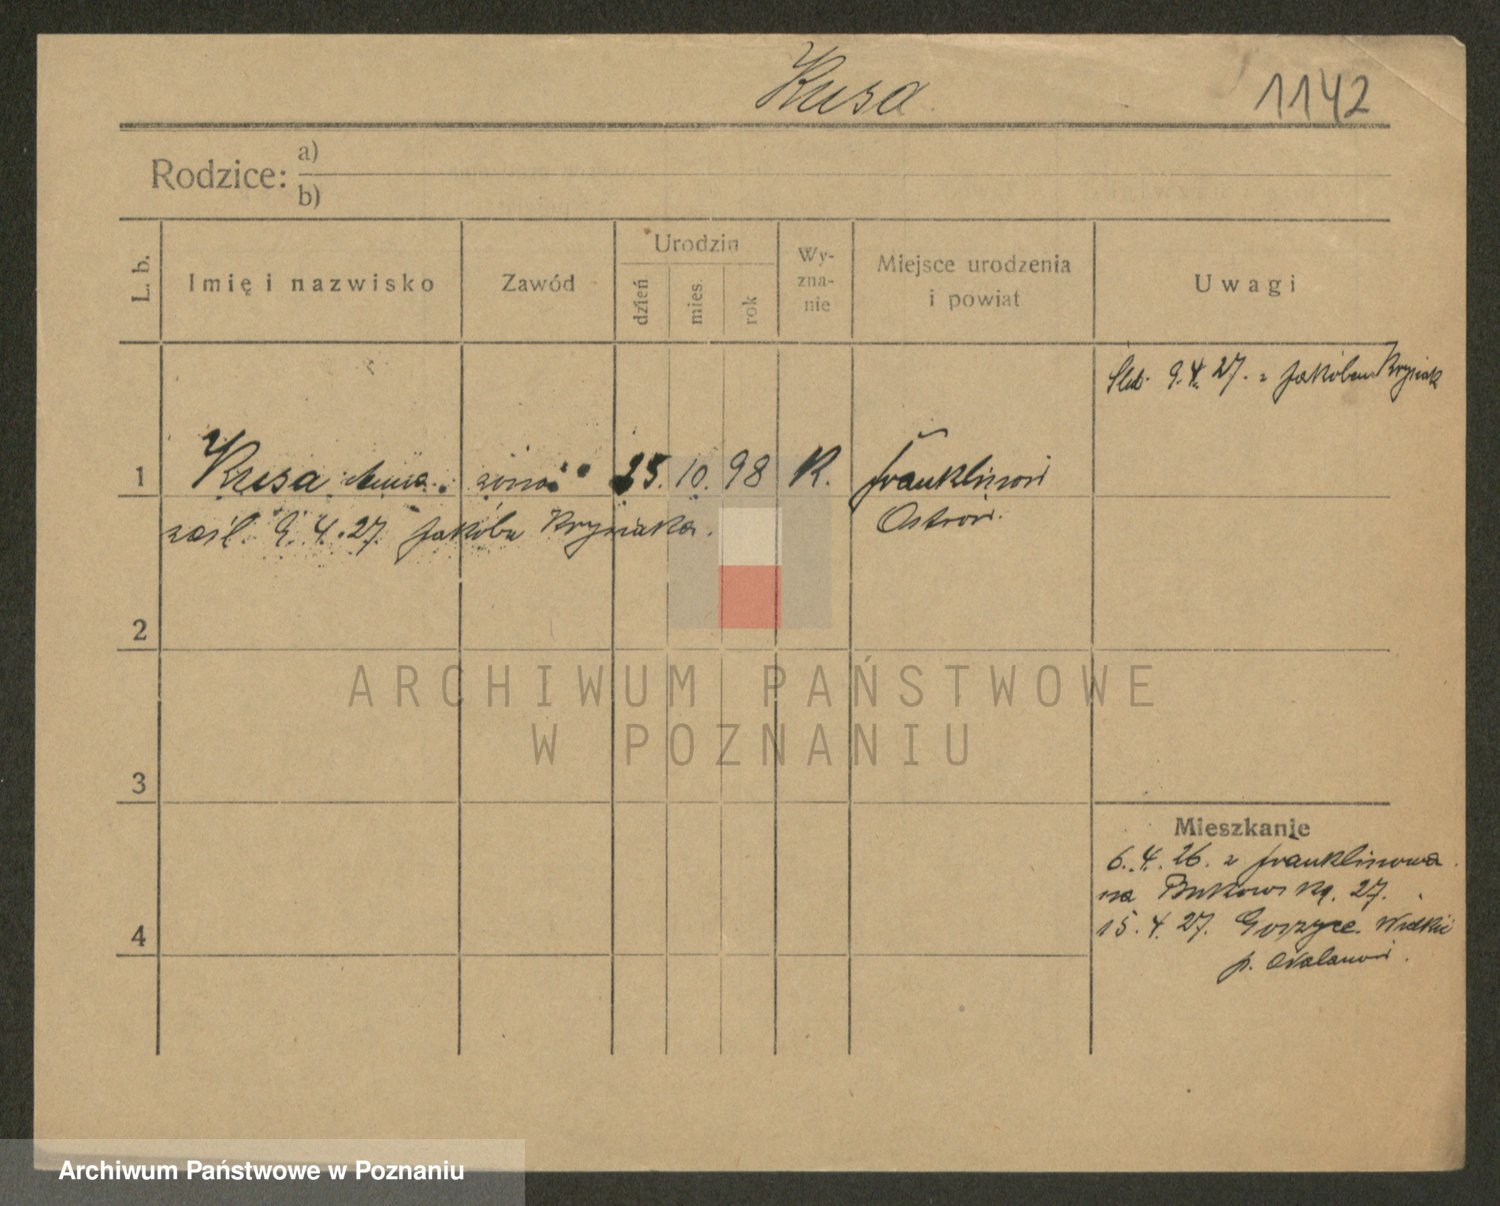 Kusa
1142
Rodzice: a)
b)
L. b.
Imię i nazwisko
Zawód
Urodzin
dzień
mies.
rok
Wy-
zna-
nie
Miejsce urodzenia
i powiat
Uwagi
9.4.27. z Jakóbem Krysiak
1 Kusa Anna 25. 10. 98 R. Franklinów
Ostrów.
zaśl. 9.4.27. Jakóba Krysiaka.
2
ARCHIWUM PAŃSTWOWE
W POZNANIU
3
Mieszkanie
6.4.26. z Franklinowa
na Bukowską. 27.
15.4.27. Gorzyce Wielkie
4
p.
Archiwum Państwowe w Poznaniu